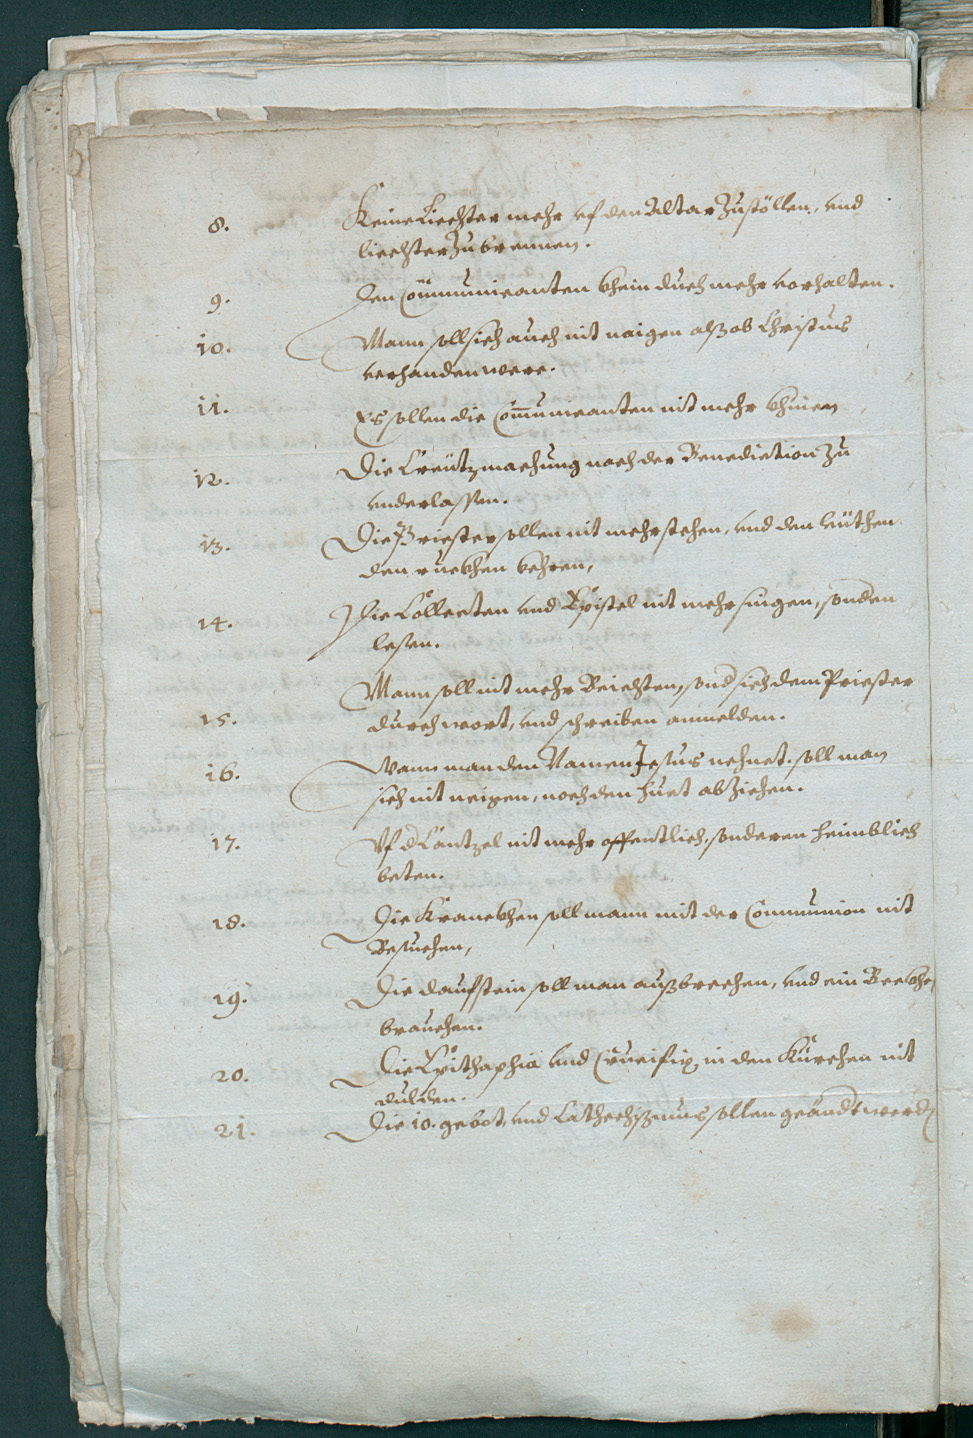 8. Keine Liechter mehr vf den Altar Zustöllen, vnd
liechter Zubrennen.
9. Den Com̃unicanten khein duch mehr vorhalten.
10. Mann soll sich auch nit naigen alß ob Christus
verhanden were.
11. Es sollen die Com̃unicanten nit mehr khnien
12. Die Creützmachung nach der Benediction Zu
vnderlassen.
13. Die Priester sollen nit mehr stehen, vnd den leüthen
den ruckhen kehren,
14. Die Collecten vnd Epistel nit mehr singen, sonden
lesen.
15. Mann soll nit mehr Beichten, sond sich dem Priester
durch wort, vnd schreiben anmelden.
16. Wann man den Namen Jesus nehnet. soll man
sich nit neigen, noch den huet abziehen.
17. Vf d Cantzel nit mehr offentlich, sonderen heimblich
beten.
18. Die Kranckhen soll mann mit der Communion nit
Besuchen,
19. Die daufstein soll man außbrechen, vnd ein Beckhe
brauchen.
20. Die Epithaphia vnd Crucifix in den Kürchen nit
dulden.
21. Die 10. gebot, vnd Cathechißmus sollen geändt werd